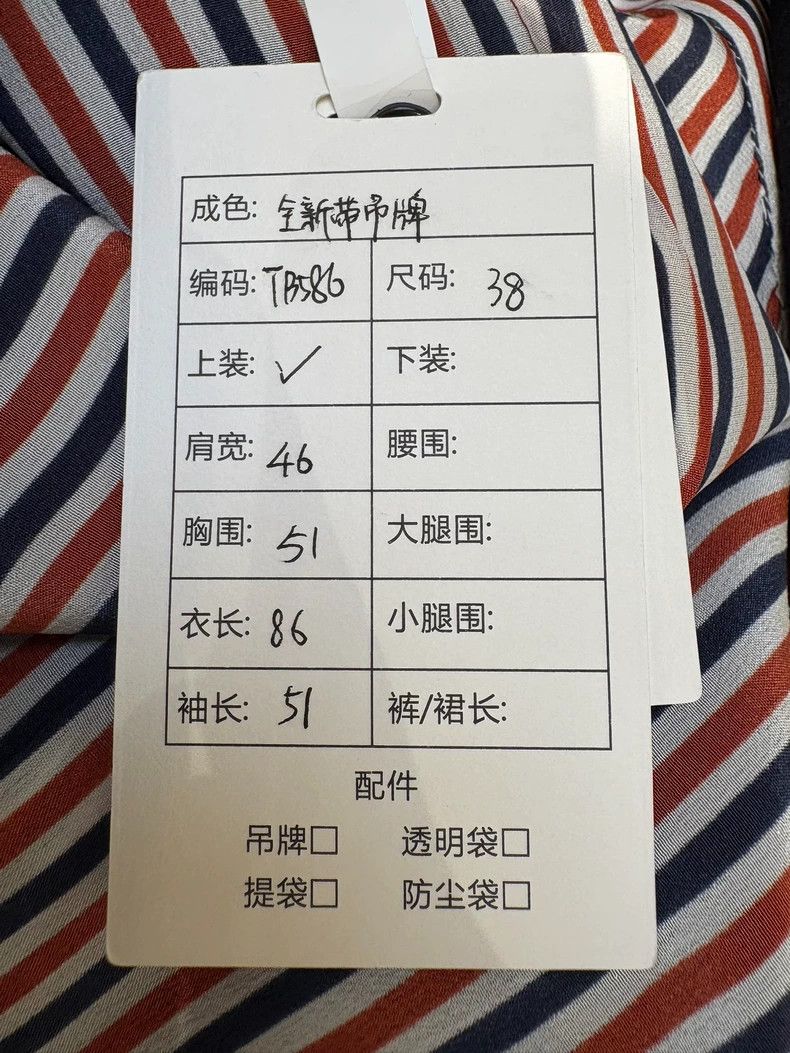 成色: 全新带吊牌
编码: TB586 尺码: 38
上装: ✓ 下装:
肩宽: 46 腰围:
胸围: 51 大腿围:
衣长: 86 小腿围:
袖长: 51 裤/裙长:
配件
吊牌□ 透明袋□
提袋□ 防尘袋□